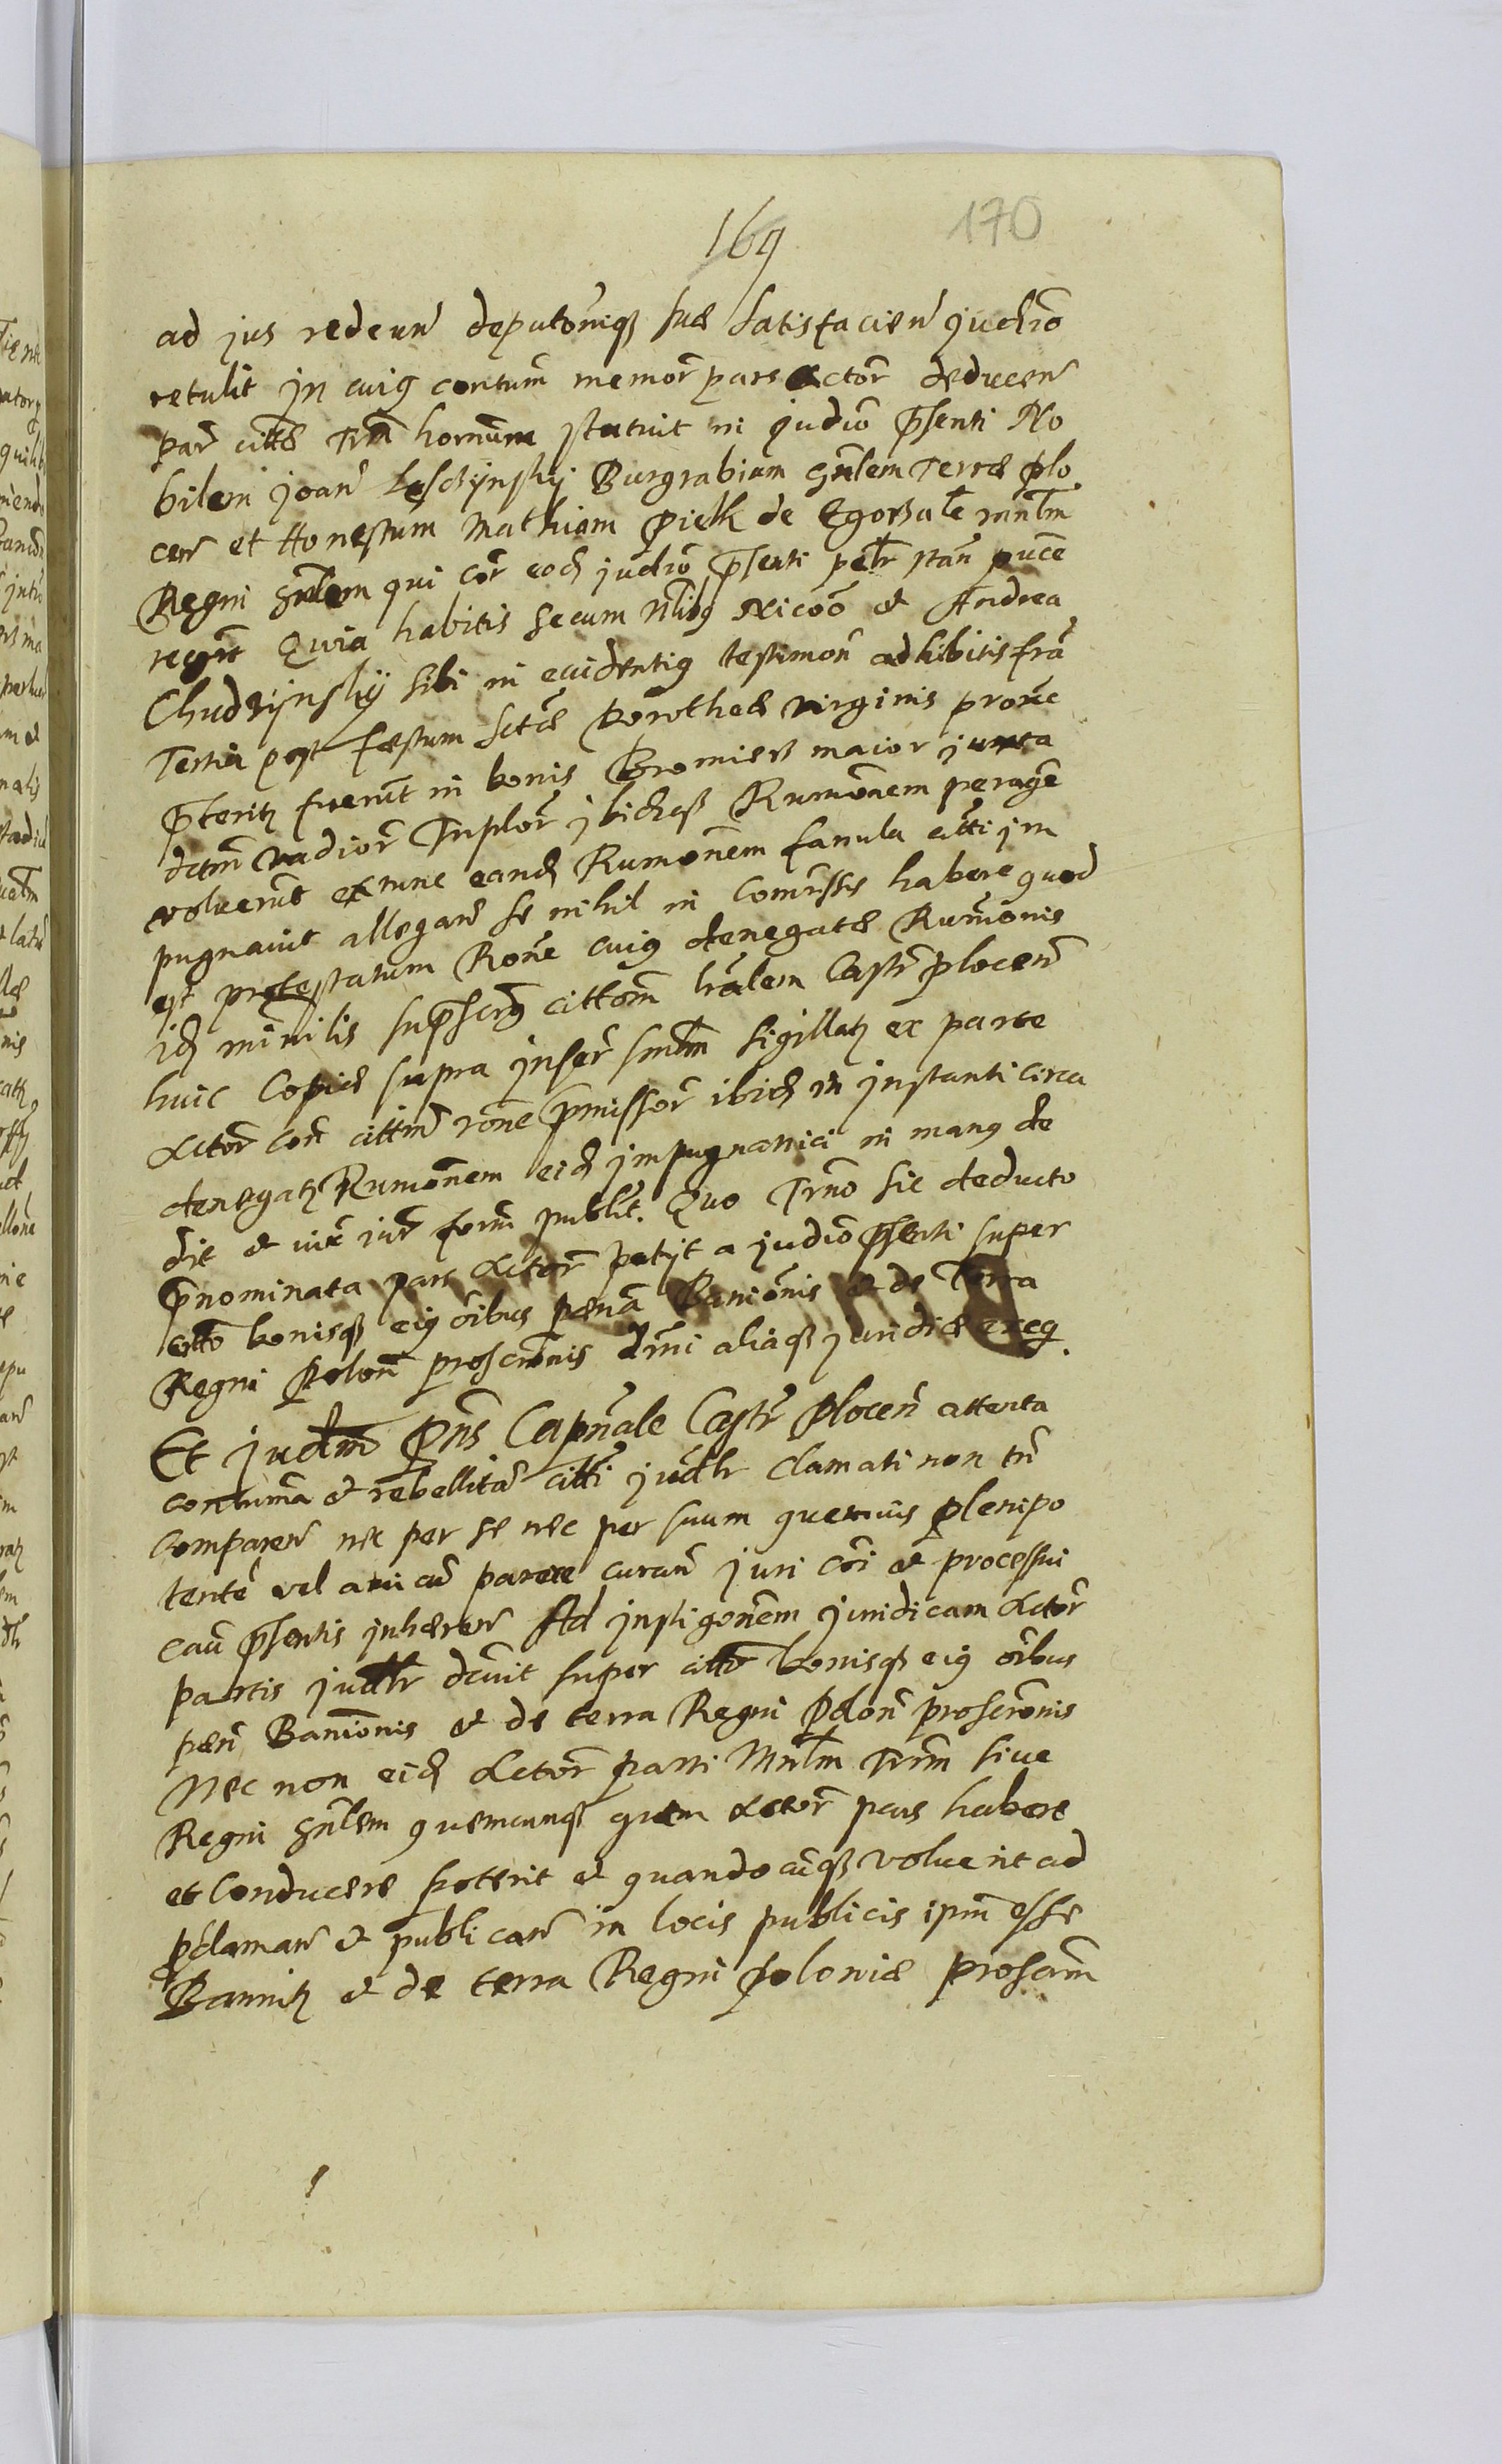 169 170
ad jus redeun deputomiqz suae satisfacien judio
retulit in cuius contum memor pars actor deducen
par cittae Trm hornum statuit in judio psenti No
bilem joan Leschynskij Burgrabium gnlem Terrae Plo
cen et Honestum Mathiam Pielk de Egorzale mnlm
Regni gnlem qui cor eod judio psenti petr stan
recogt Quia habitis secum nlibus Nicoo et Andrea
Chudzijnskij sibi in evidentius testimon adhibitis fra
Tertia post festum sctae Dorotheae virginis prone
pterity fuerunt in bonis Bromierz maior juxta
detm vadior Triplor ibidemqz Rumonem perage
voluerunt extunc eand Rumonem famula citti im
pugnavit allegan se nihil in comissis habere quod
est protestatum Rone cuius denegatae Rumonis
id minilis supscrus cittom lralem Castr plocen
huic Copiae supra inser smlm sigillaty ex parte
Actor con cittm rone pmissor ibid in instanti circa
denegaty Rumonem eid impugnatrici in manus de
dit et iux iur form publit. Quo Trno sic deducto
pnominata pars Actor petijt a judio psenti super
citto bonisqz eius oibus paena Banionis et de Terra
Regni Polon proscronis drni aliaqz juridicae exeq.
Et judm pns Capnale Castr Plocen attenta
contuma et rebellita citti judlr clamati non tn
comparen nec per se nec per suum quemvis plenipo
tente vel amicu parere curan juri coi et processui
cau psentis inhaeren Ad instigonem juridicam Actor
partis judlr devit super citto bonisqz eius oibus
paen Banionis et de terra Regni Polon proscronis
Nec non eid Actor parti Mnlm Trrm sive
Regni gnlem quemcunqz quem Actor pars habere
et conducere poterit et quandocuqz voluerit ad
pclaman et publican in locis publicis ipm esse
Bannity et de terra Regni Poloniae proscrm